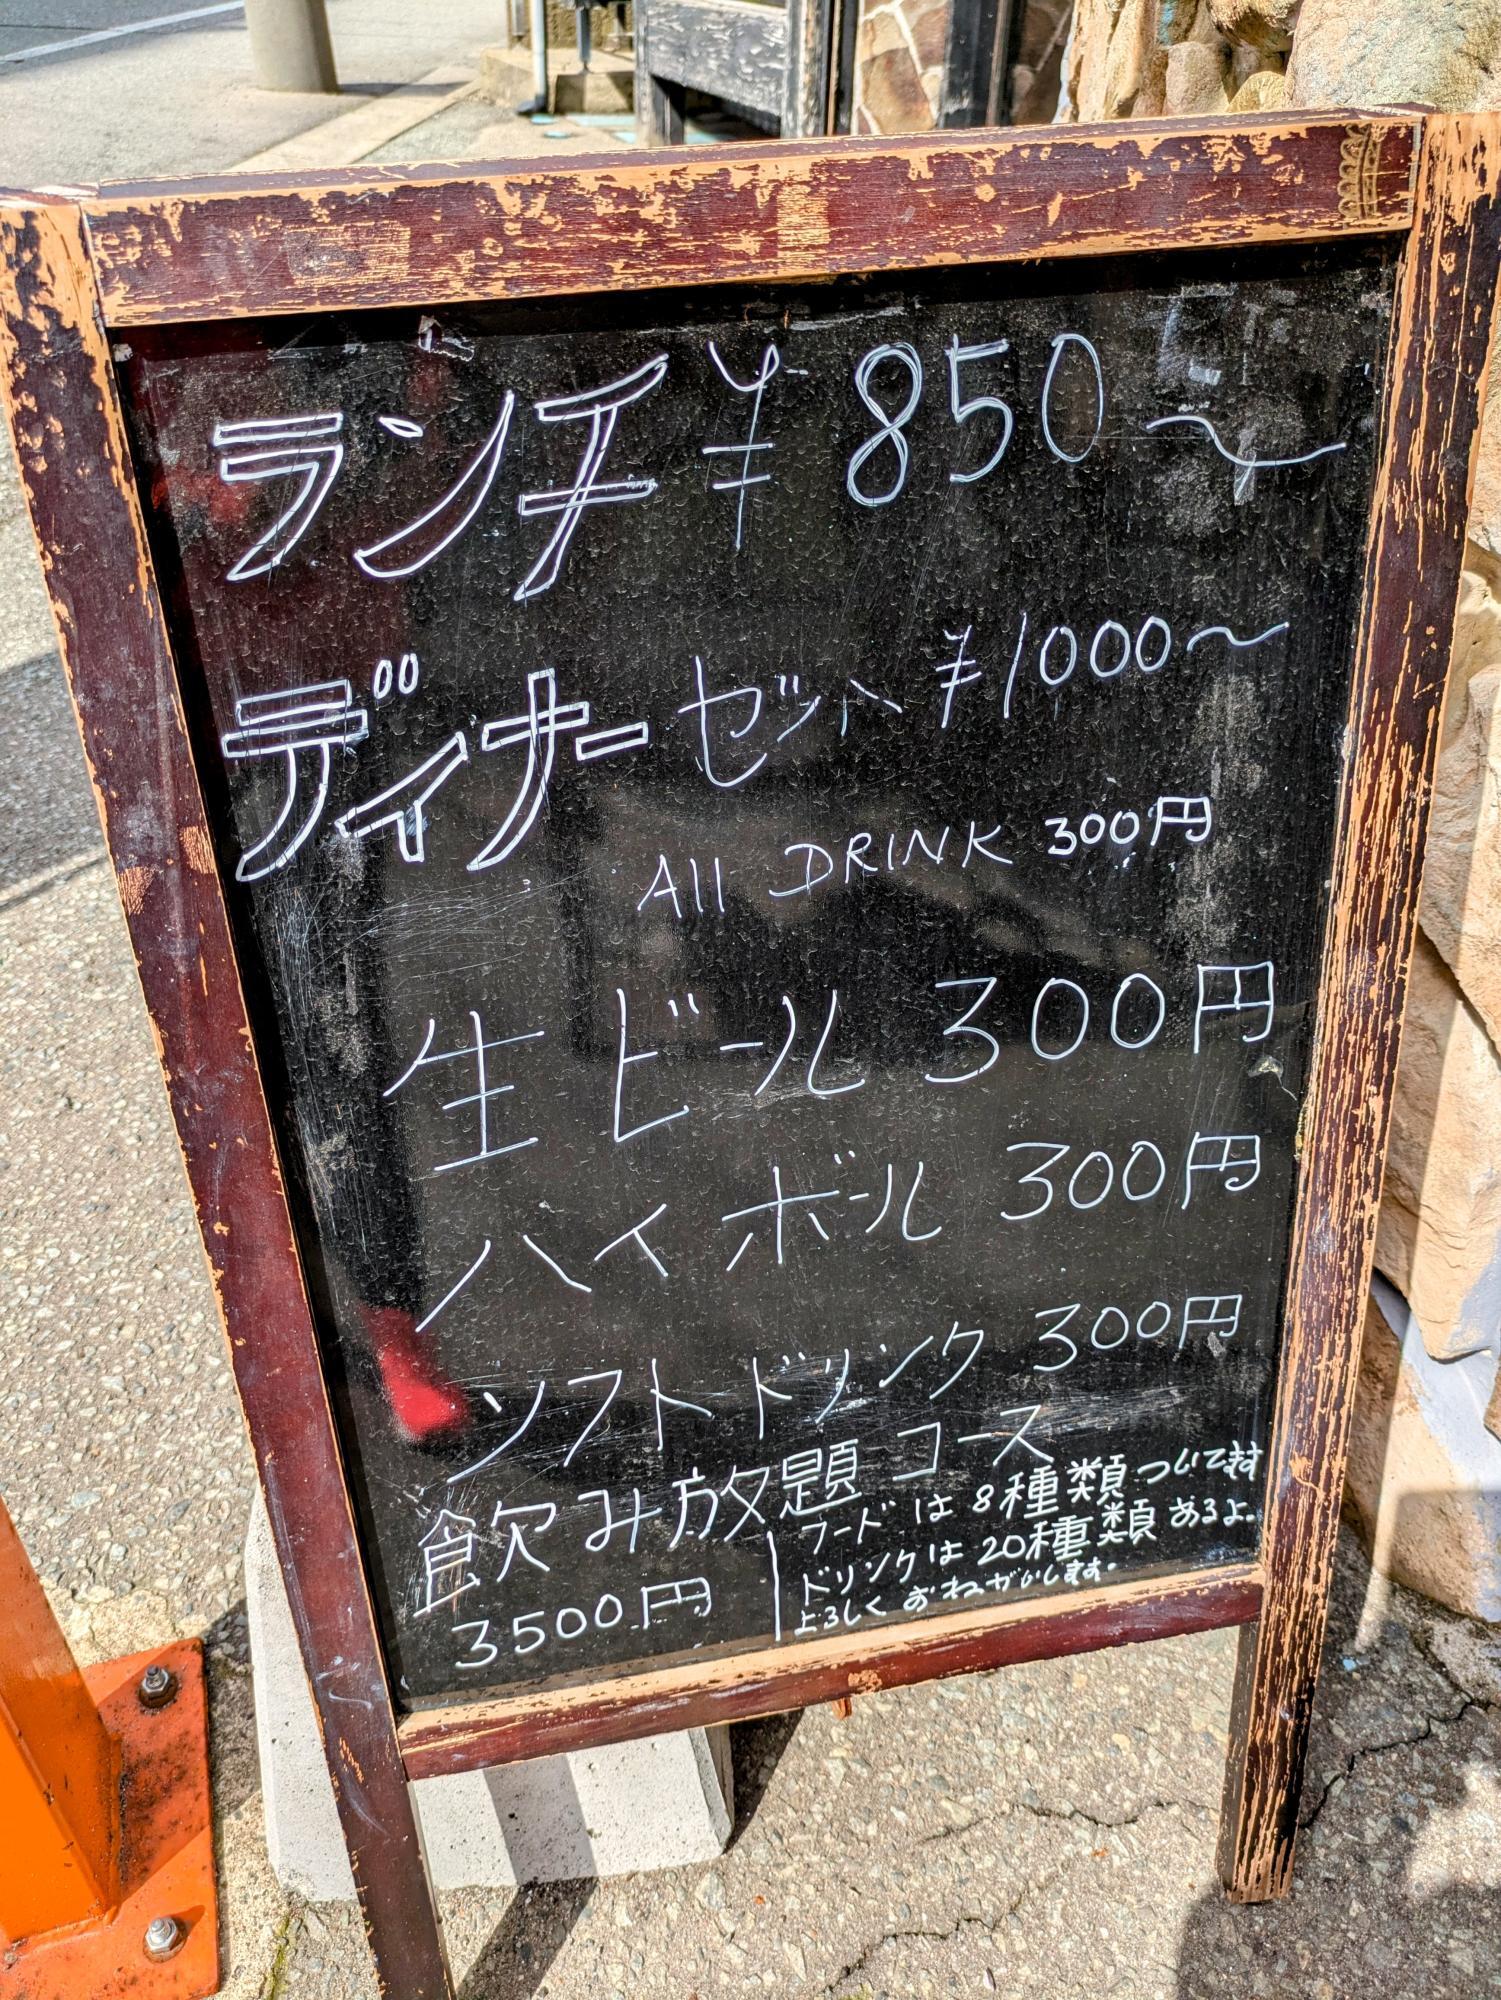 ランチ ¥850〜
ディナー ゼット ¥1000〜
All DRINK 300円
生ビール 300円
ハイボール 300円
ソフトドリンク 300円
飲み放題 コース
3500円
フードは 8種類ついてます
ドリンクは 20種類 あるよ.
よろしくおねがいします.